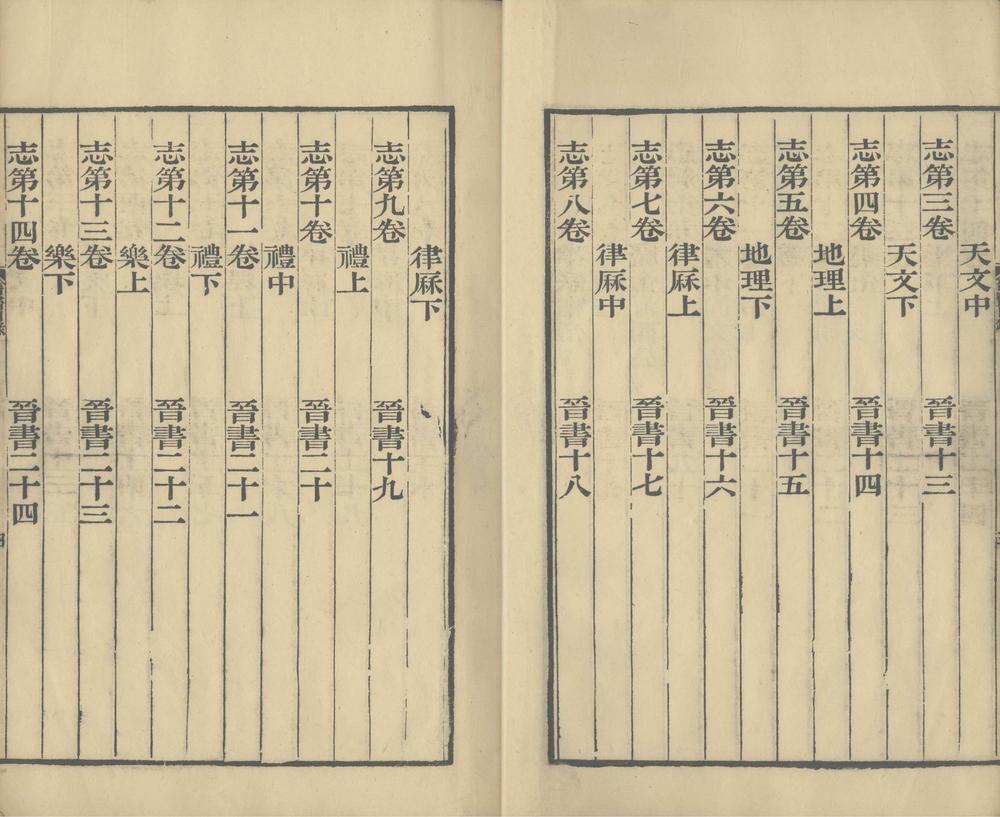 天文中
志第三卷 晉書十三
天文下
志第四卷 晉書十四
地理上
志第五卷 晉書十五
地理下
志第六卷 晉書十六
律厤上
志第七卷 晉書十七
律厤中
志第八卷 晉書十八
律厤下
志第九卷 晉書十九
禮上
志第十卷 晉書二十
禮中
志第十一卷 晉書二十一
禮下
志第十二卷 晉書二十二
樂上
志第十三卷 晉書二十三
樂下
志第十四卷 晉書二十四